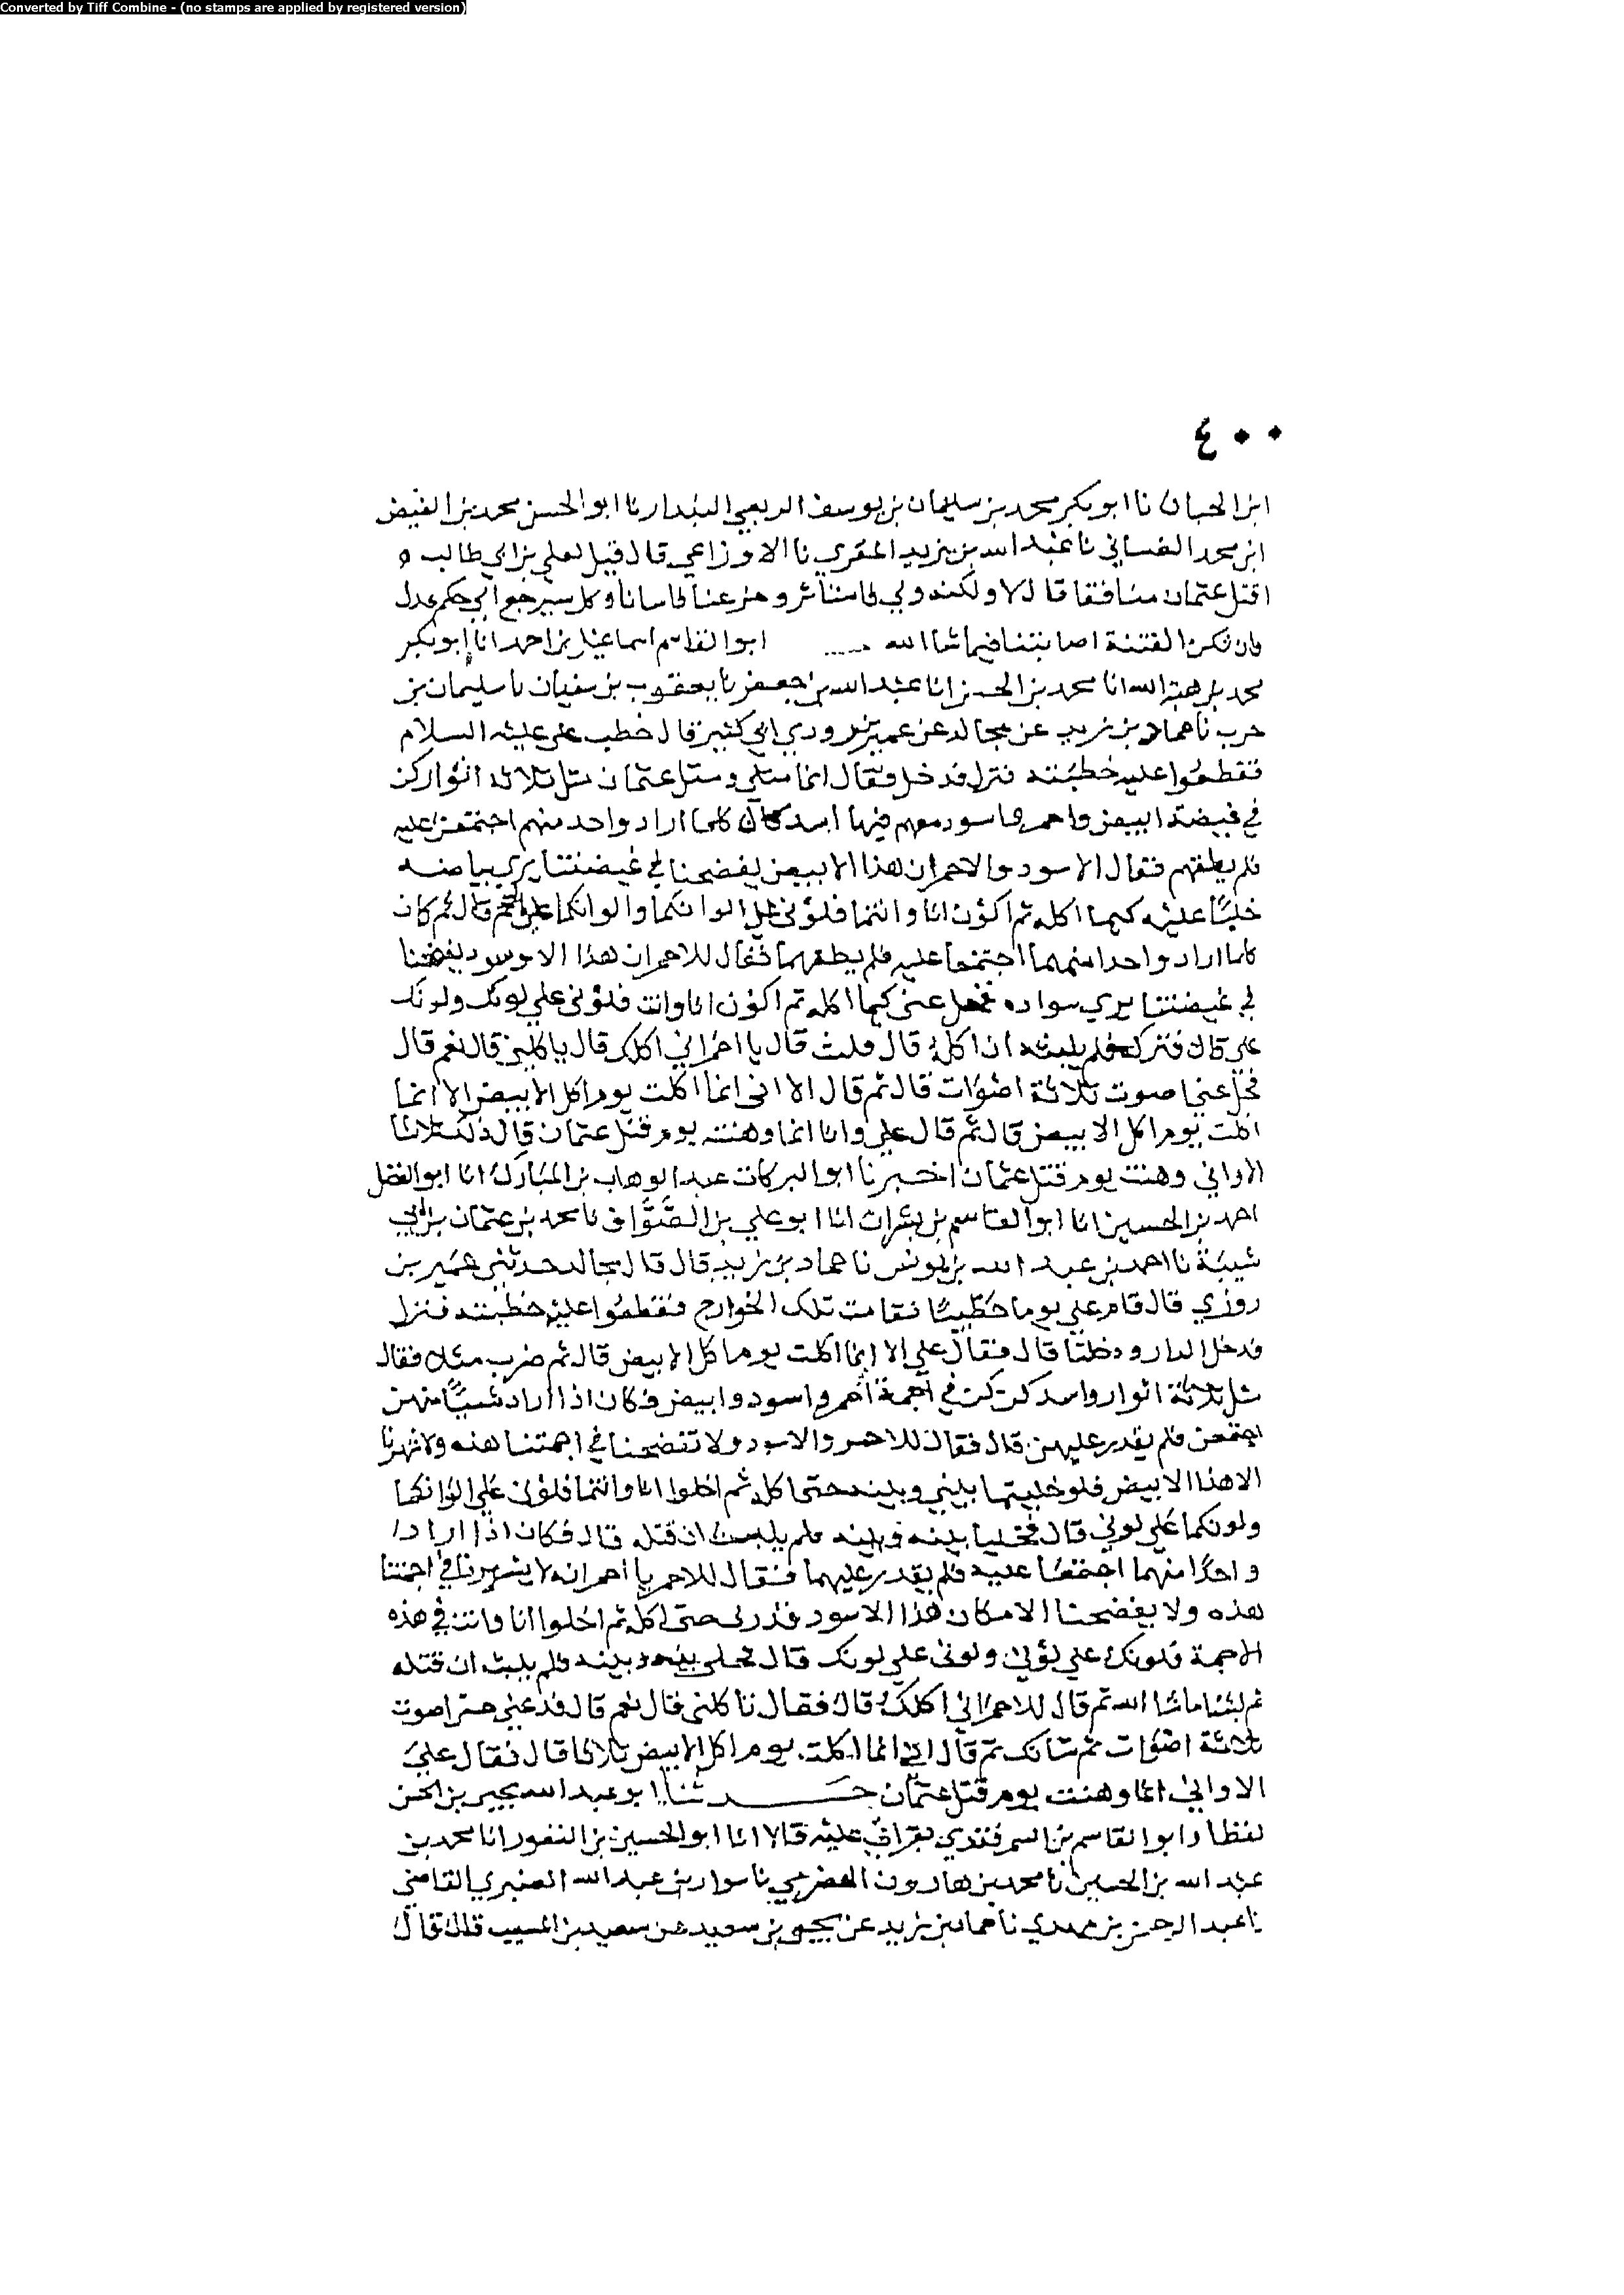 Converted by Tiff Combine - (no stamps are applied by registered version)
٤٠٠
ابن الحبان نا ابو بكر محمد بن سليمان بن يوسف الربعي البندار نا ابو الحسن محمد بن الفيض
ابن محمد الغساني نا عبد الله بن يزيد المقري نا الاوزاعي قال قيل لعلي بن ابي طالب
اقتل عثمان منافقا قال لا ولكنه ولي فاستاثر وجزعنا فاسانا وكل سيرجع الي حكم عدل
فان تكن الفتنة اصابتنا فيما شا الله ابو القاسم اسماعيل بن احمد انا ابو بكر
محمد بن هبة الله انا محمد بن الحسن انا عبد الله بن جعفر نا يعقوب بن سفيان نا سليمان بن
حرب نا حماد بن زيد عن مجالد عن عمير بن رودي ابي كثير قال خطب علي عليه السلام
فقطعوا عليه خطبته فنزل فدخل فقال انما مثلي ومثل عثمان مثل ثلاثه اثوار كن
في غيضة ابيض واحمر واسود معهم فيها اسد كان كلما اراد واحد منهم اجتمعن عليه
فلم يطقهم فقال الاسود والاحمر ان هذا الابيض يفضحنا في غيضتنا يري بياضه
خليا عليه كيما اكله ثم اكون انا وانتما فلوني علي الوانكما والوانكما علي قال ثم كان
كلما اراد واحدا منهما اجتمعا عليه فلم يطقهما فقال للاحمر ان هذا الاسود يفضحنا
في غيضتنا يري سواده فخل عني كيما اكله ثم اكون انا وانت فلوني علي لونك ولونك
علي قال فتركه فلم يلبثه ان اكله قال فلبث قال يا احمر اني اكلك قال تاكلني قال نعم قال
فخل عني اصوت ثلاثة اصوات قال ثم قال الا اني انما اكلت يوم اكل الابيض الا انما
اكلت يوم اكل الابيض قال ثم قال علي وانا انما وهنت يوم قتل عثمان قال ذلك ثلاثا
الا واني وهنت يوم قتل عثمان اخبرنا ابو البركات عبد الوهاب بن المبارك انا ابو الفضل
احمد بن الحسين انا ابو القاسم بن بشران انا ابو علي بن الصواف نا محمد بن عثمان بن ابي
شيبة نا احمد بن عبد الله بن يونس نا حماد بن زيد قال قال مجالد حدثني عمير بن
روزي قال قام علي يوما خطيبا فقامت تلك الخوارج فقطعوا عليه خطبته فنزل
فدخل الدار ودخلنا قال فقال علي الا انما اكلت يوم اكل الابيض قال ثم ضرب مثلا فقال
مثل ثلاثة اثوار واسد كن في اجمة احمر واسود وابيض فكان اذا اراد شيئا منهن
اجتمعن فلم يقدر عليهن قال فقال للاحمر والاسود لا تفضحنا في اجمتنا هذه ولا شهرنا
الا هذا الابيض فلو خليتما بيني وبينه حتي اكله ثم اخلوا انا وانتما فلوني علي الوانكما
ولونكما علي لوني قال فخليا بينه وبينه فلم يلبث ان قتله قال فكان اذا اراد
واحدا منهما اجتمعا عليه فلم يقدر عليهما فقال للاحمر يا احمر انه لا يشهرنا في اجمتنا
هذه ولا يفضحنا الا مكان هذا الاسود فذرني حتي اكله ثم اخلوا انا وانت في هذه
الاجمة فلونك علي لوني ولوني علي لونك قال فخلي بينه وبينه فلم يلبث ان قتله
ثم لبثنا ما شا الله ثم قال للاحمر اني اكلك قال فقال تاكلني قال نعم قال فدعني حتي اصوت
ثلاثة اصوات ثم شانك ثم قال الا اني انما اكلت يوم اكل الابيض ثلاثا قال فقال علي
الا واني انما وهنت يوم قتل عثمان حدثنا ابو عبد الله يحيي بن الحسن
لفظا وابو القاسم بن السمرقندي بقراتي عليه قالا انا ابو الحسين بن النقور انا محمد بن
عبد الله بن الحسين نا محمد بن هارون الحضرمي نا سوار بن عبد الله العنبري القاضي
نا عبد الرحمن بن مهدي نا حماد بن زيد عن يحيي بن سعيد عن سعيد بن المسيب قال